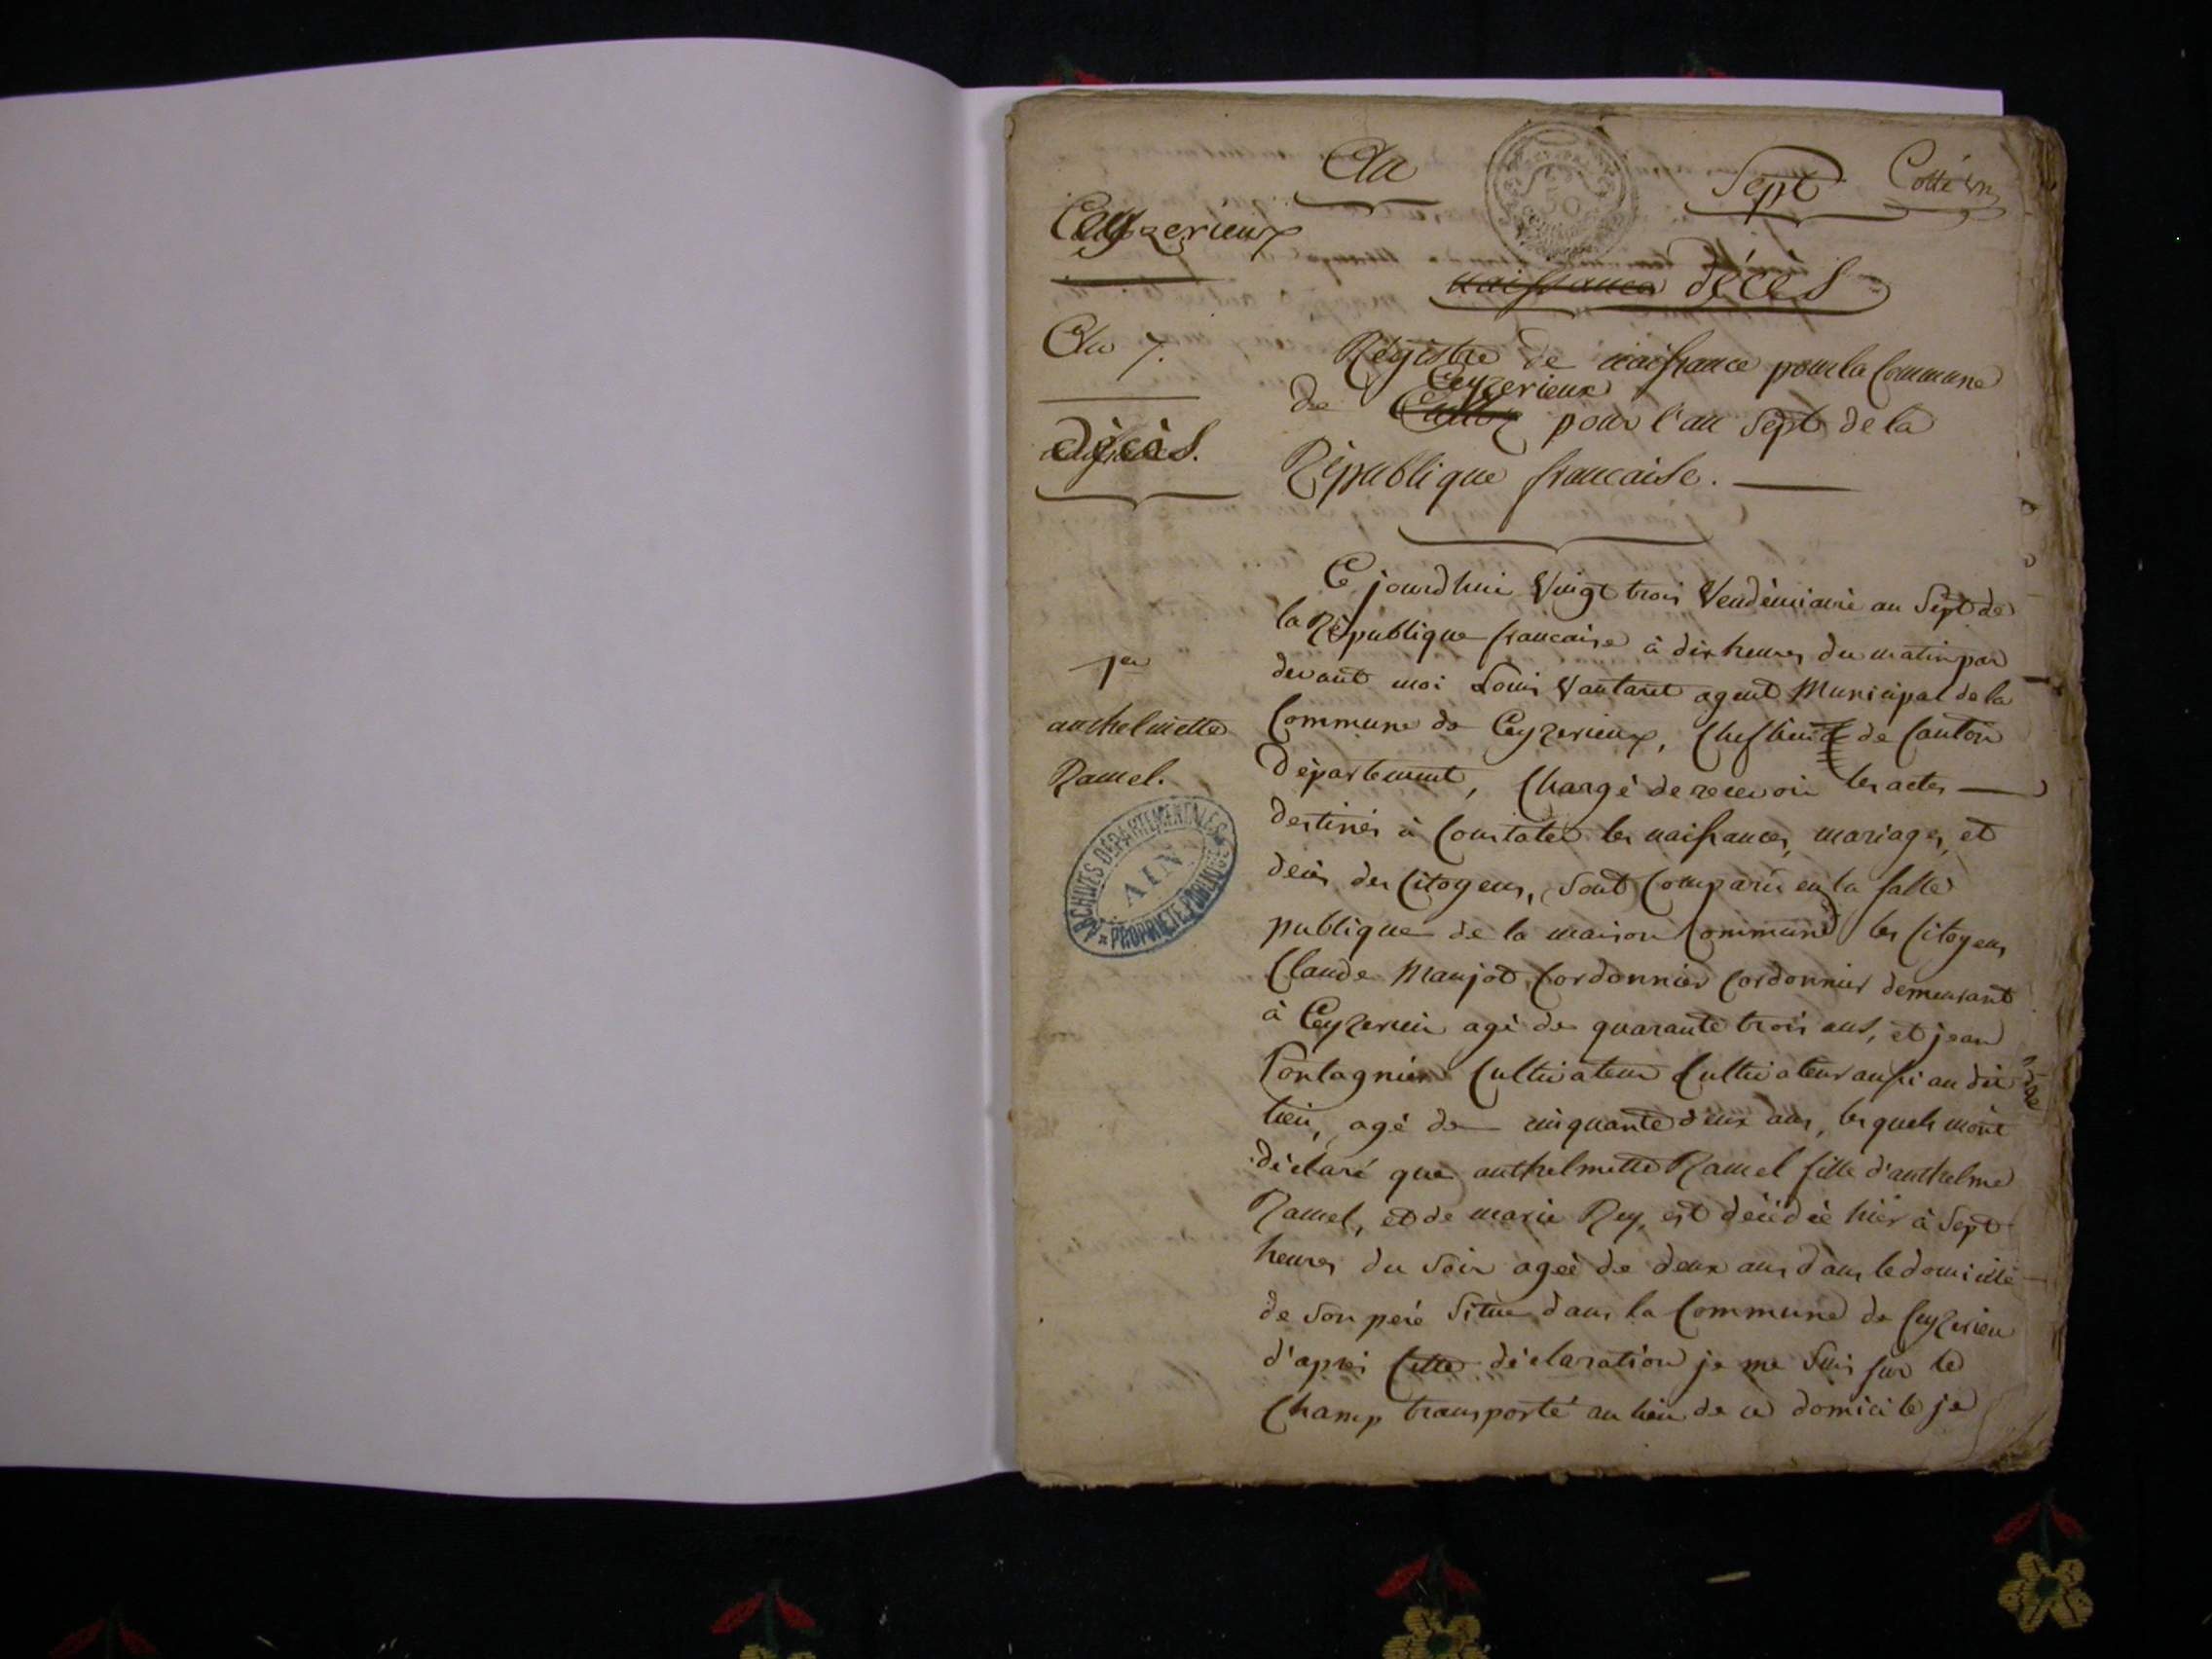 An Sept Cotté un
Ceyzerieux
naissance décès
An 7.
Régistre de naissance pour la Commune
Ceyzerieux
de pour l'an Sept de la
décès.
République francaise.
Ce jourd'hui Vingt trois Vendémiaire an Sept de
la République francaise à dix heures du matin par
1er
devant moi Louis Vautaret agent Municipal de la
anthelmette
Commune de Ceyzerieux, Chef lieu de Canton
Ramel.
Département, Chargé de recevoir les actes
ARCHIVES DÉPARTEMENTALES
AIN
PROPRIÉTÉ PUBLIQUE
destinés à Constater les naissances, mariages, et
decés des Citoyens, Sont Comparus en la salle
publique de la maison Commune les Citoyens
Claude Maujod Cordonnier Cordonnier demeurant
à Ceyzerieu agé de quarante trois ans, et jean
Pontagnier Cultivateur Cultivateur aussi au dit
lieu, agé de cinquante deux ans, lesquels mont
déclaré que anthelmette Ramel fille d'anthelme
Ramel, et de marie Rey, est décédée hier à Sept
heures du Soir ageé de deux ans dans le domicile
de Son pere Situé dans la Commune de Ceyzerieu
d'après Cette déclaration je me Suis sur le
Champ transporté au lieu de ce domicile je